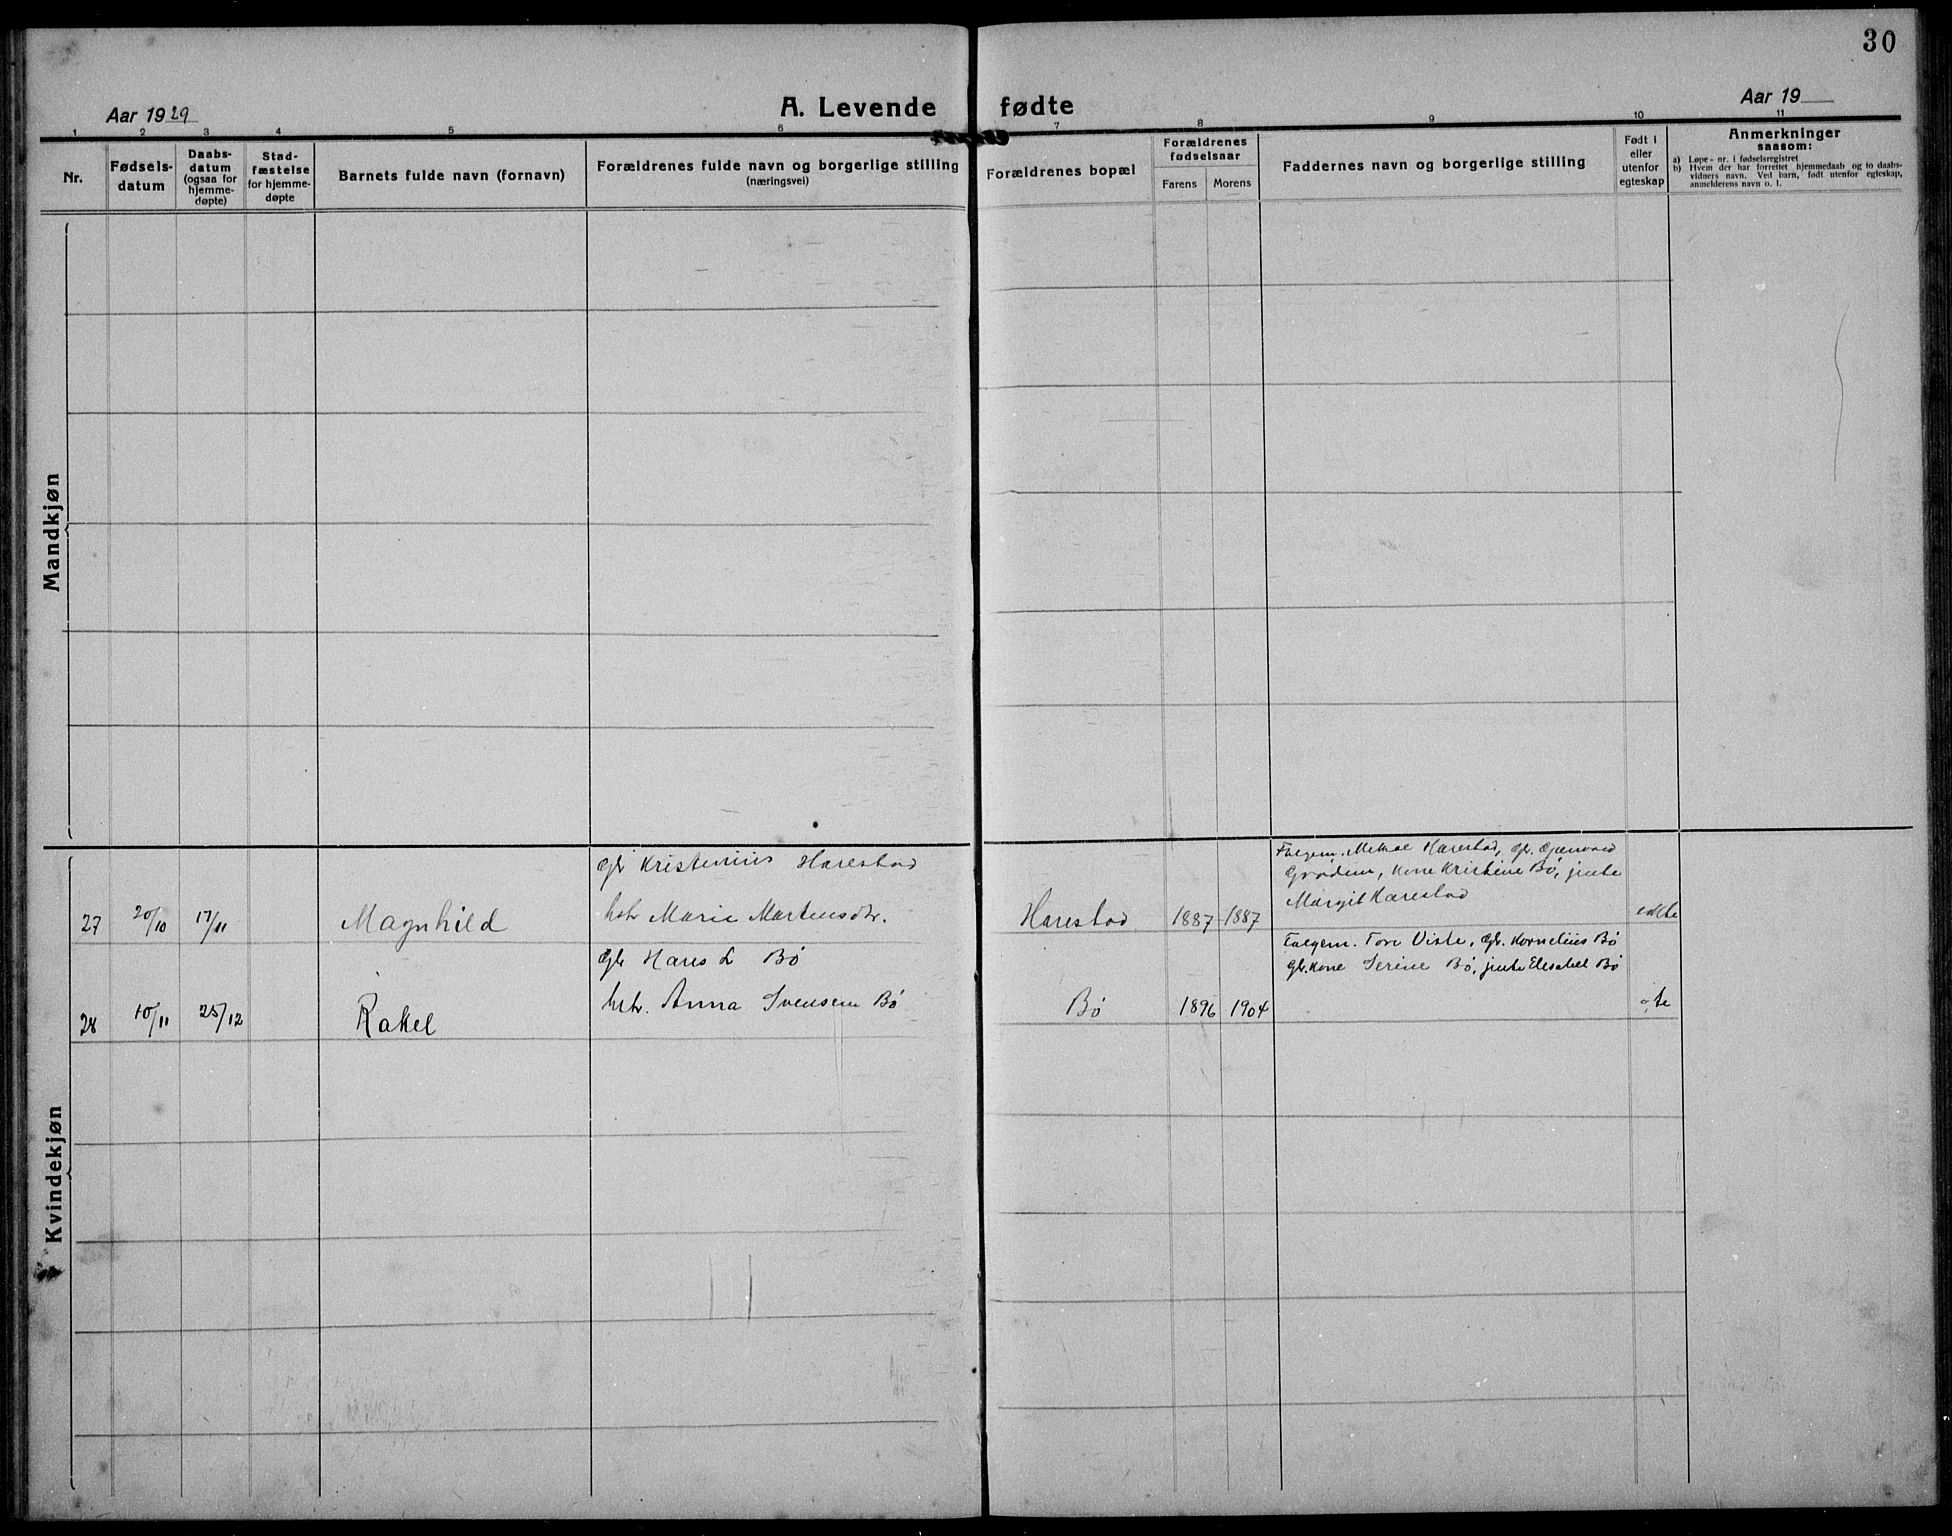 30
Aar 1929
A. Levende fødte
Aar 19
1 2 3 4 5 6 7 8 9 10 11
Nr.
Fødsels-
datum
Daabs-
datum
(ogsaa for
hjemme-
døpte)
Stad-
fæstelse
for hjemme-
døpte
Barnets fulde navn (fornavn)
Forældrenes fulde navn og borgerlige stilling
(næringsvei)
Forældrenes bopæl
Forældrenes
fødselsaar
Farens Morens
Faddernes navn og borgerlige stilling
Født i
eller
utenfor
egteskap
Anmerkninger
saasom:
a) Løpe-nr. i fødselsregistret
b) Hvem der har forrettet hjemmedaab og to daabs-
vidners navn. Ved barn, født utenfor egteskap,
anmelderens navn o. l.
Mandkjøn
Kvindekjøn
27 20/10 17/11 Magnhild
gb Kristenius Harestad
hstr Marie Martensdtr.
Harestad 1887 1887
Harestad, gb.
Kone Kristine Bø, jente
Margit Harestad
egte
28 10/11 25/12 Rakel
gb Hans L Bø
hstr. Anna Svensen Bø
Bø 1896 1904
Tore Viste, gb. Kornelius Bø
gb. kone Serine Bø, jente Elisabet Bø